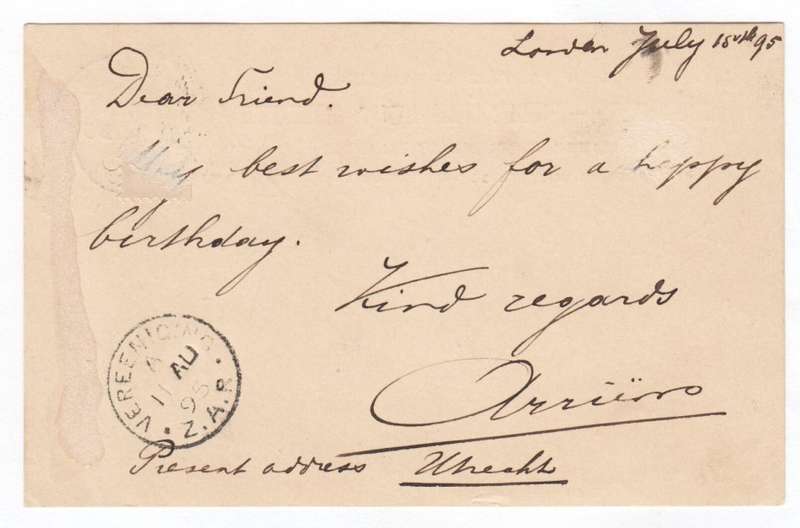 London July 15th 95
Dear Friend.
My best wishes for a happy
birthday.
Kind regards
VEREENIGING.
A
11 AU
95
Z.A.R.
Present address Utrecht